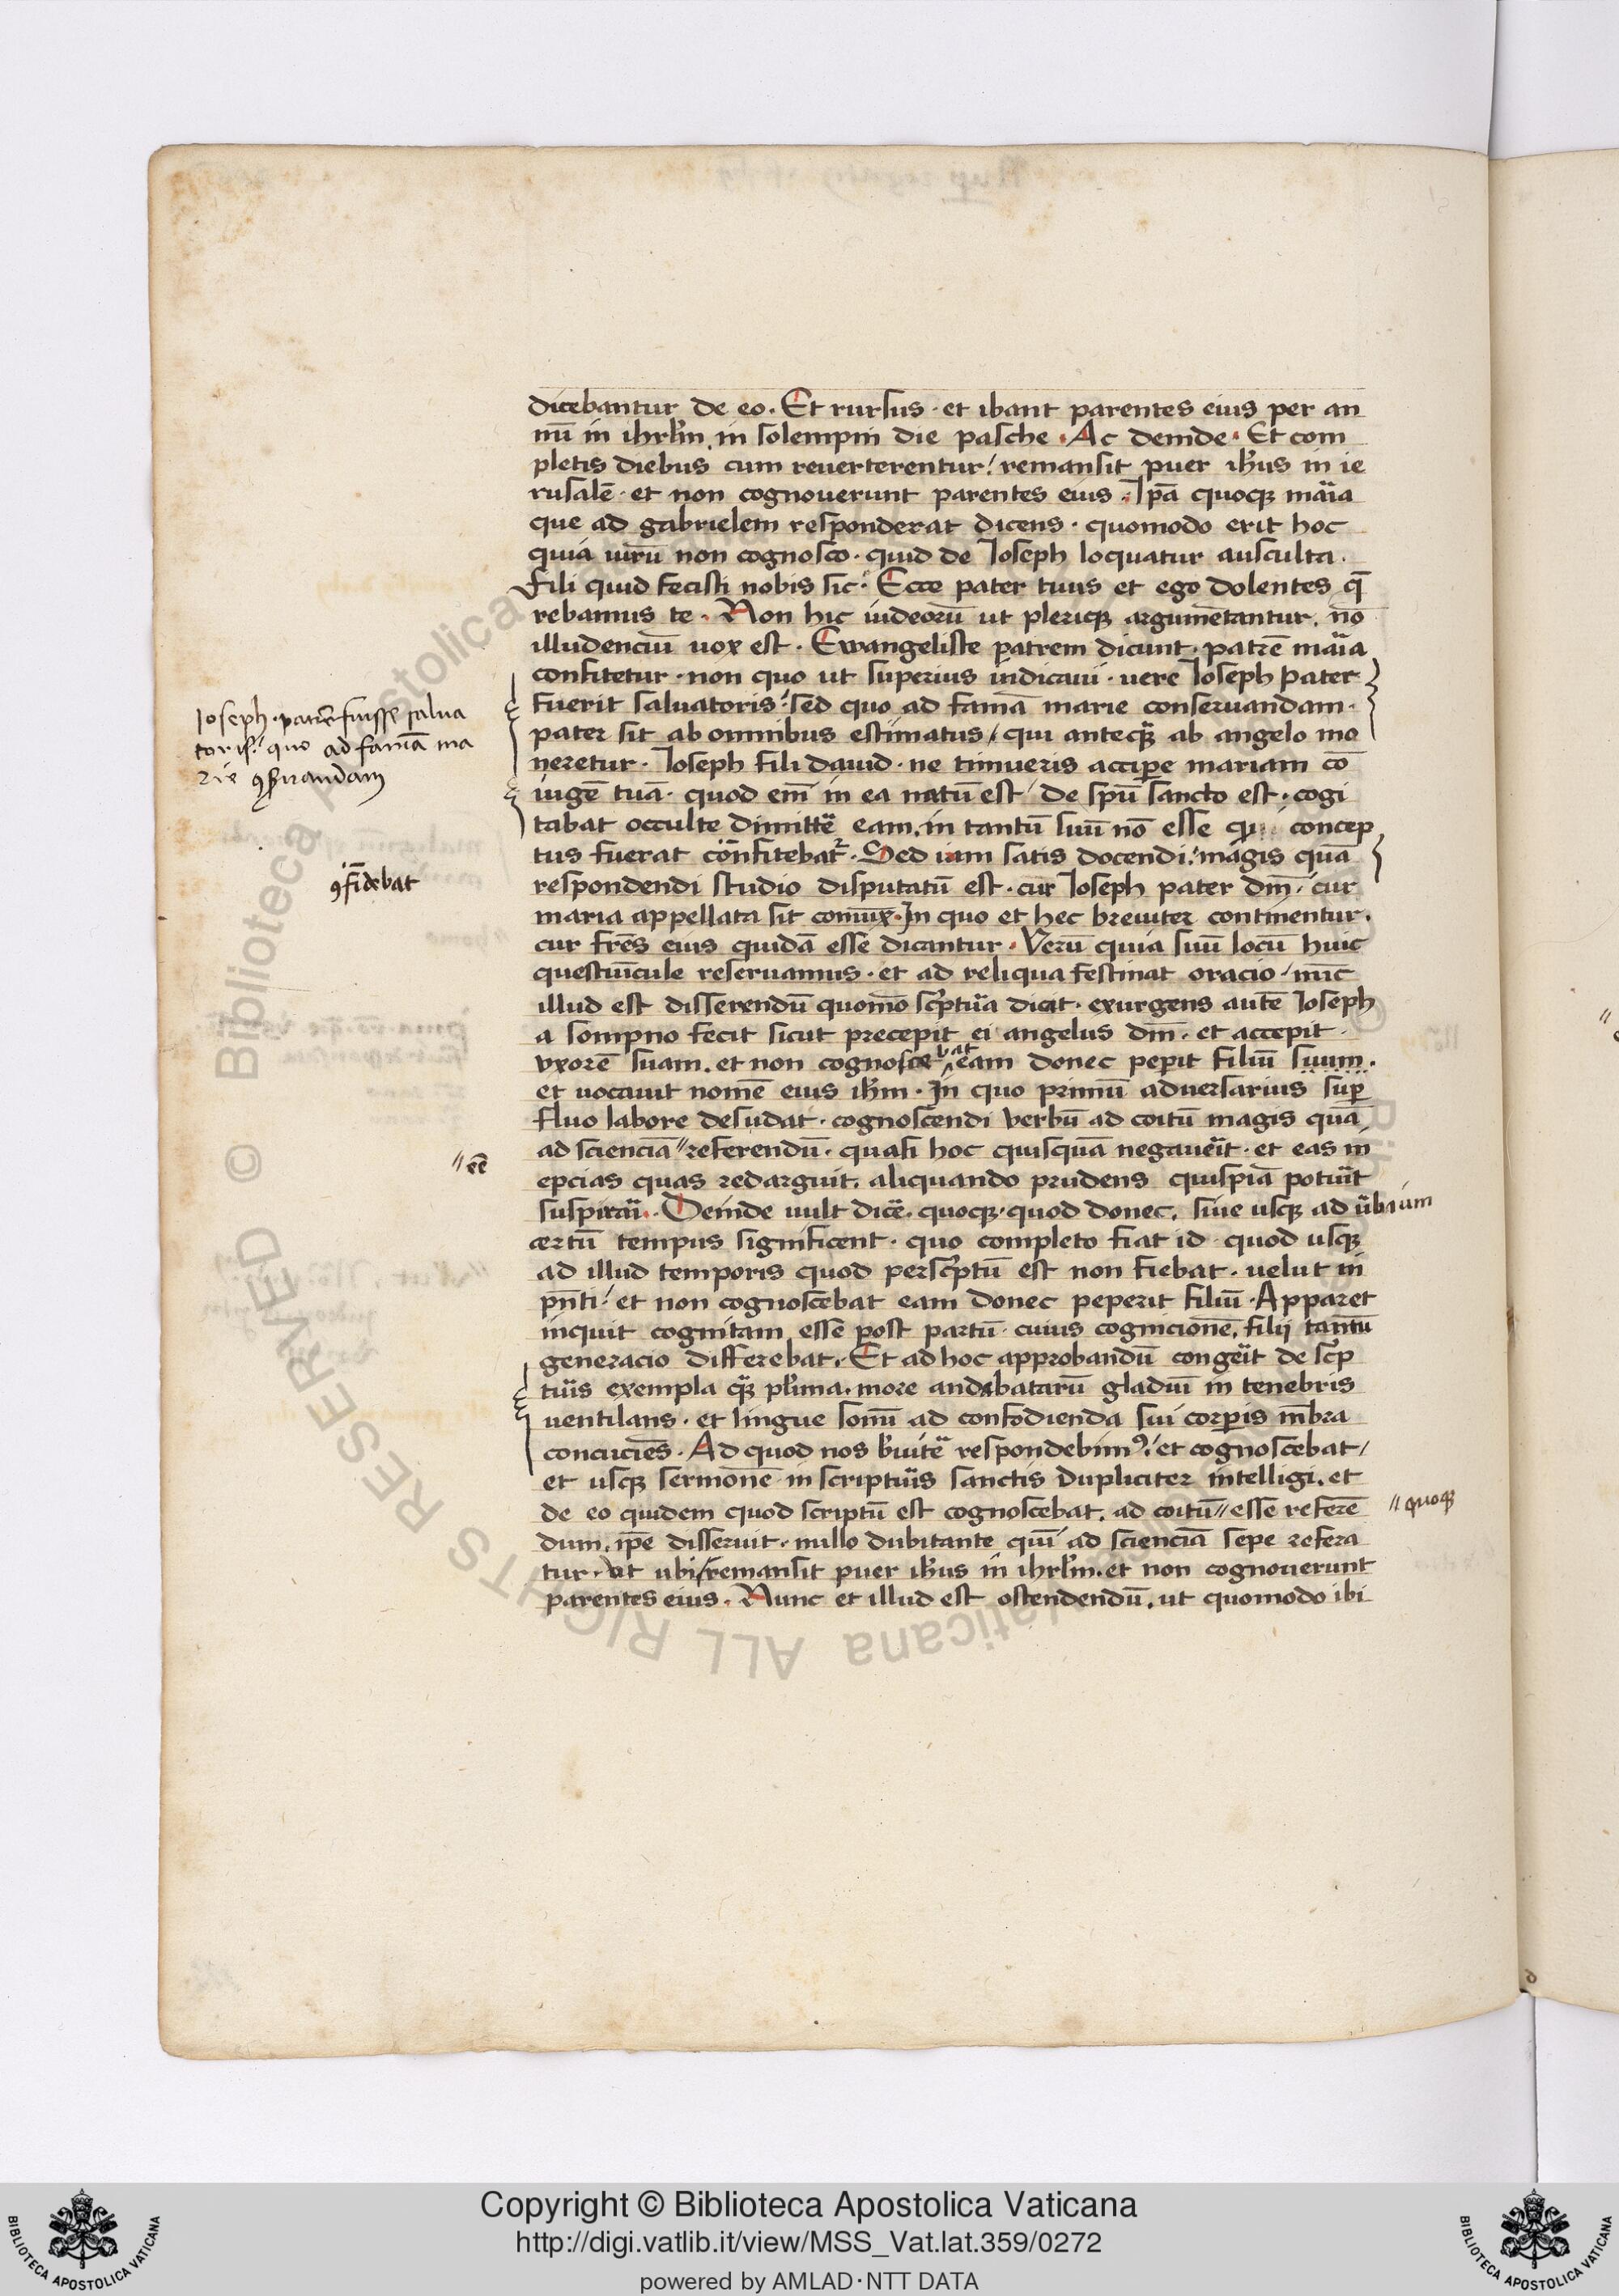 dicebantur de eo. Et rursus · et ibant parentes eius per an
nū in ihrl̄m, in solempni die pasche · Ac deinde · Et com
pletis diebus cum reuerterentur / remansit puer ih̄us in ie
rusalē · et non cognouerunt parentes eius · Ip̄a quoqꝫ maͥa
que ad gabrielem responderat dicens · quomodo erit hoc
quia uirū non cognosco · quid de Ioseph loquatur ausculta ·
Fili quid fecisti nobis sic · Ecce pater tuus et ego dolentes q̄
rebamus te · Non hic iudeorū ut pleriqꝫ argumētantur, nō
illudenciū uox est · Ewangeliste patrem dicunt · patrē maͥa
confitetur · non quo ut superius indicaui · uere Ioseph pater
fuerit saluatoris · sed quo ad famā marie conseruandam ·
pater sit ab omnibus estimatus / qui anteqꝫ ab angelo mo
neretur · Ioseph fili dauid · ne timueris accip̱e mariam cō
iugē tuā · quod em̄ in ea natū est / de sp̄u sancto est · cogi
tabat occulte dimittē eam, in tantū suū nō esse qui concep
tus fuerat cōnfitebat᷒ · Sed iam satis docendi · magis quā
respondendi studio disputatū est · cur Ioseph pater dn̄i · cur
maria appellata sit coniux · In quo et hec breuiter continentur ·
cur fr̄es eius quidā esse dicantur · Verū quia suū locū huic
questiūcule reseruamus · et ad reliqua festinat oracio / nūc
illud est disserendū quom̄o sc̄ptura dicit · exurgens autē Ioseph
a sompno fecit sicut precepit ei angelus dn̄i · et accepit ·
vxorē suam, et non cognoscebat eam donec pep̱it filiū suum ·
et uocauit nomē eius ih̄m · In quo primū aduersarius sup̱
fluo labore desudat · cognoscendi verbū ad coitū magis quā
ad scienciā // referendū · quasi hoc quisquā negauēit · et eas in
epcias quas redarguit, aliquando prudens quispiā potuēit
suspicari · Deinde uult dicē · quoqꝫ · quod donec, siue usqꝫ ad ūbium
certū tempus significent · quo completo fiat id quod usqꝫ
ad illud temporis quod persc̄ptū est non fiebat · uelut in
pn̄ti · et non cognoscebat eam donec peperit filiū · Apparet
inquit cognitam esse post partū · cuius cognicionē, filij tantū
generacio differebat · Et ad hoc approbandū congēit de sc̄p
tuͥis exempla qꝫ pl̄ima, more andabatarū gladiū in tenebris
uentilans · et lingue sonū ad confodienda sui corp̱is mēbra
concuciēs · Ad quod nos b̄uitē respondebimꝰ · et cognoscebat /
et usqꝫ sermonē in scriptuͥis sanctis dupliciter intelligi, et
de eo quidem quod scriptū est cognoscebat, ad coitū // esse referē
dum, ip̄e disseruit · nullo dubitante qui ad scienciā sepe refera
tur · ut ubi / remansit puer ih̄us in ihrl̄m, et non cognouerunt
parentes eius · Nunc et illud est ostendendū, ut quomodo ibi
Ioseph · patrē fuisse salua
toris · quo ad famā ma
rie ꝯẜuandam
ꝯfidebat
// eē
// quoqꝫ
Copyright © Biblioteca Apostolica Vaticana
http://digi.vatlib.it/view/MSS_Vat.lat.359/0272
powered by AMLAD·NTT DATA
BIBLIOTECA APOSTOLICA VATICANA
BIBLIOTECA APOSTOLICA VATICANA